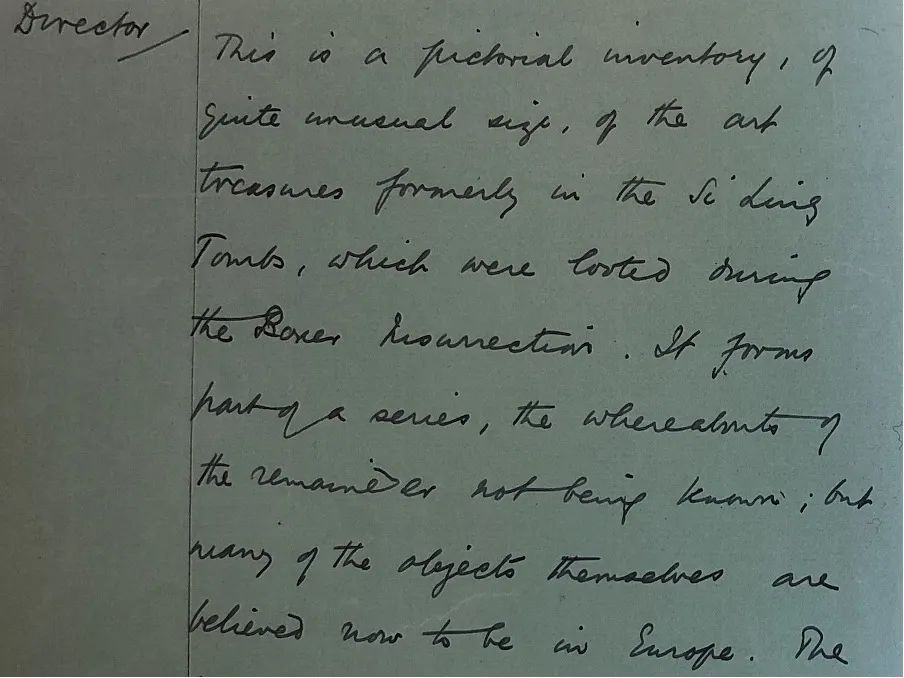 Director
This is a pictorial inventory, of
quite unusual size, of the art
treasures formerly in the Si Ling
Tombs, which were looted during
the Boxer Insurrection. It forms
part of a series, the whereabouts of
the remainder not being known; but
many of the objects themselves are
believed now to be in Europe. The